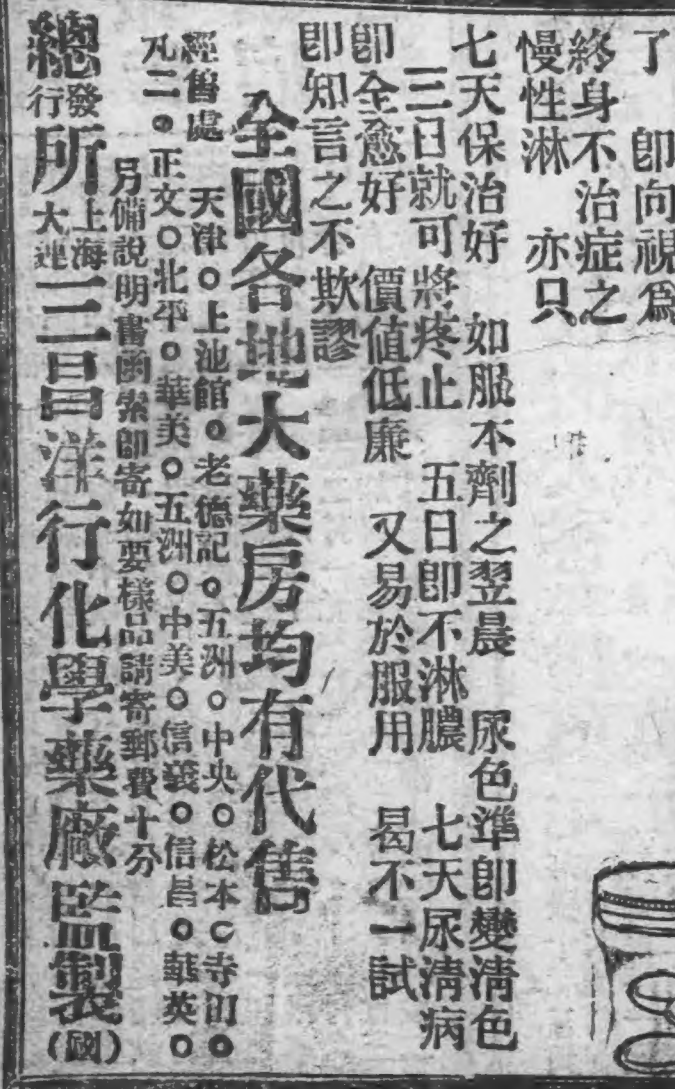 了　卽向視爲
終身不治症之
慢性淋　亦只
七天保治好　如服不劑之翌晨　尿色準卽變淸色
三日就可將疼止　五日卽不淋膿　七天尿淸病
卽全愈好　價值低廉　又易於服用　曷不一試
卽知言之不欺謬
全國各地大藥房均有代售
經售處　天津○上池館○老德記○五洲○中央○松本○寺田○
凡二○正文○北平○華美○五洲○中美○信義○信昌○華英○
另備說明書函索卽寄如要樣品請寄郵費十分
總發行所上海大連三昌洋行化學藥廠監製(國)